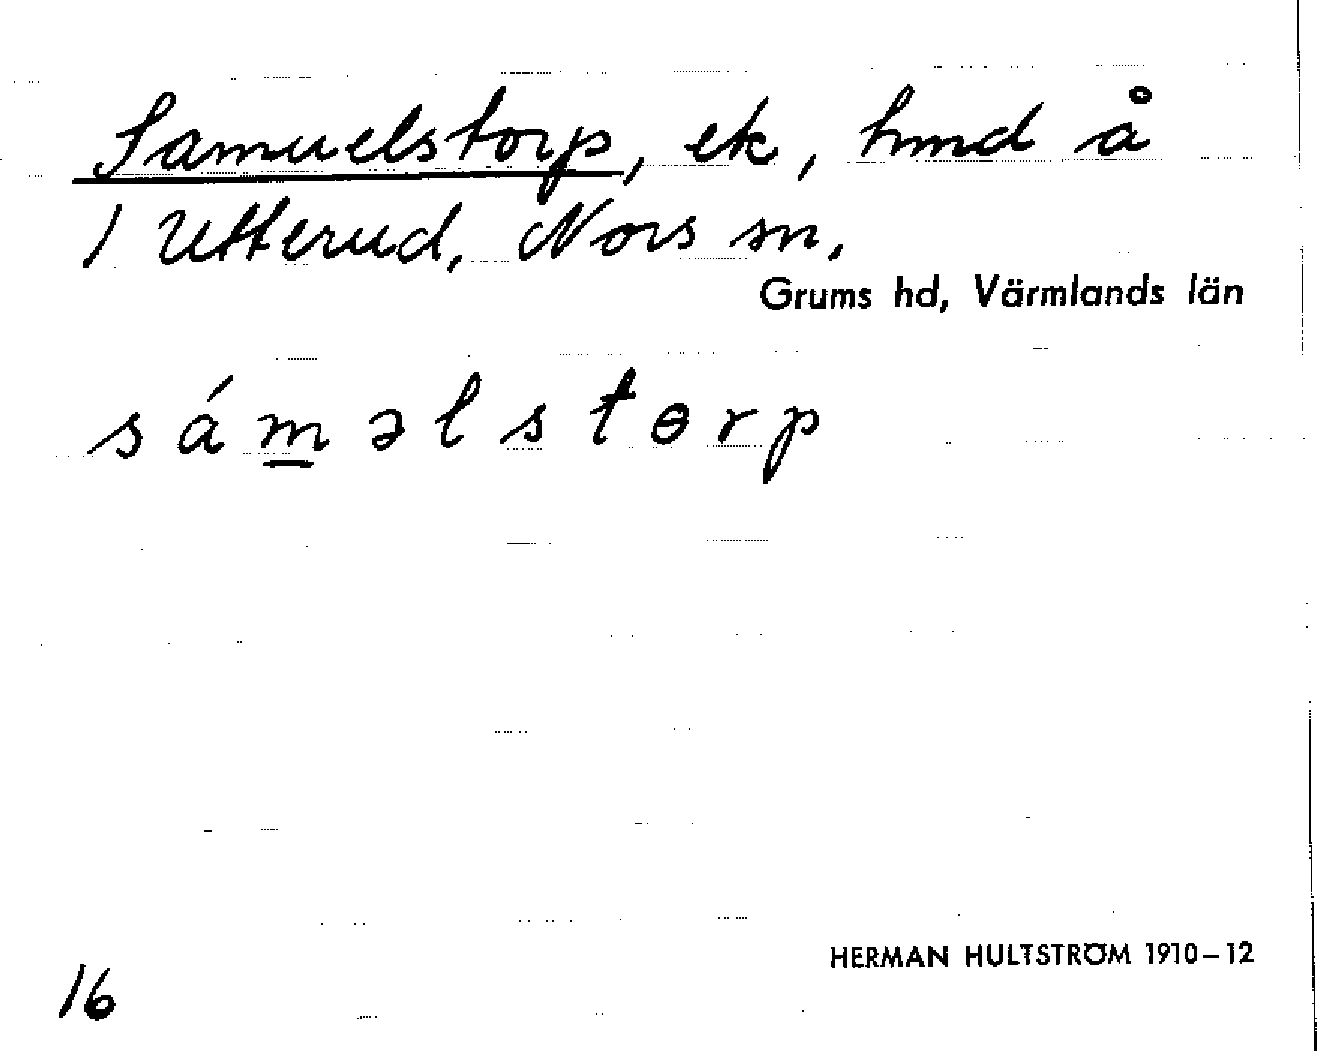 Samuelstorp, ek, hmd å
1 Utterud, Nors sn,
Grums hd, Värmlands län
sám̲əlstɵrp
HERMAN HULTSTRÖM 1910–12
16